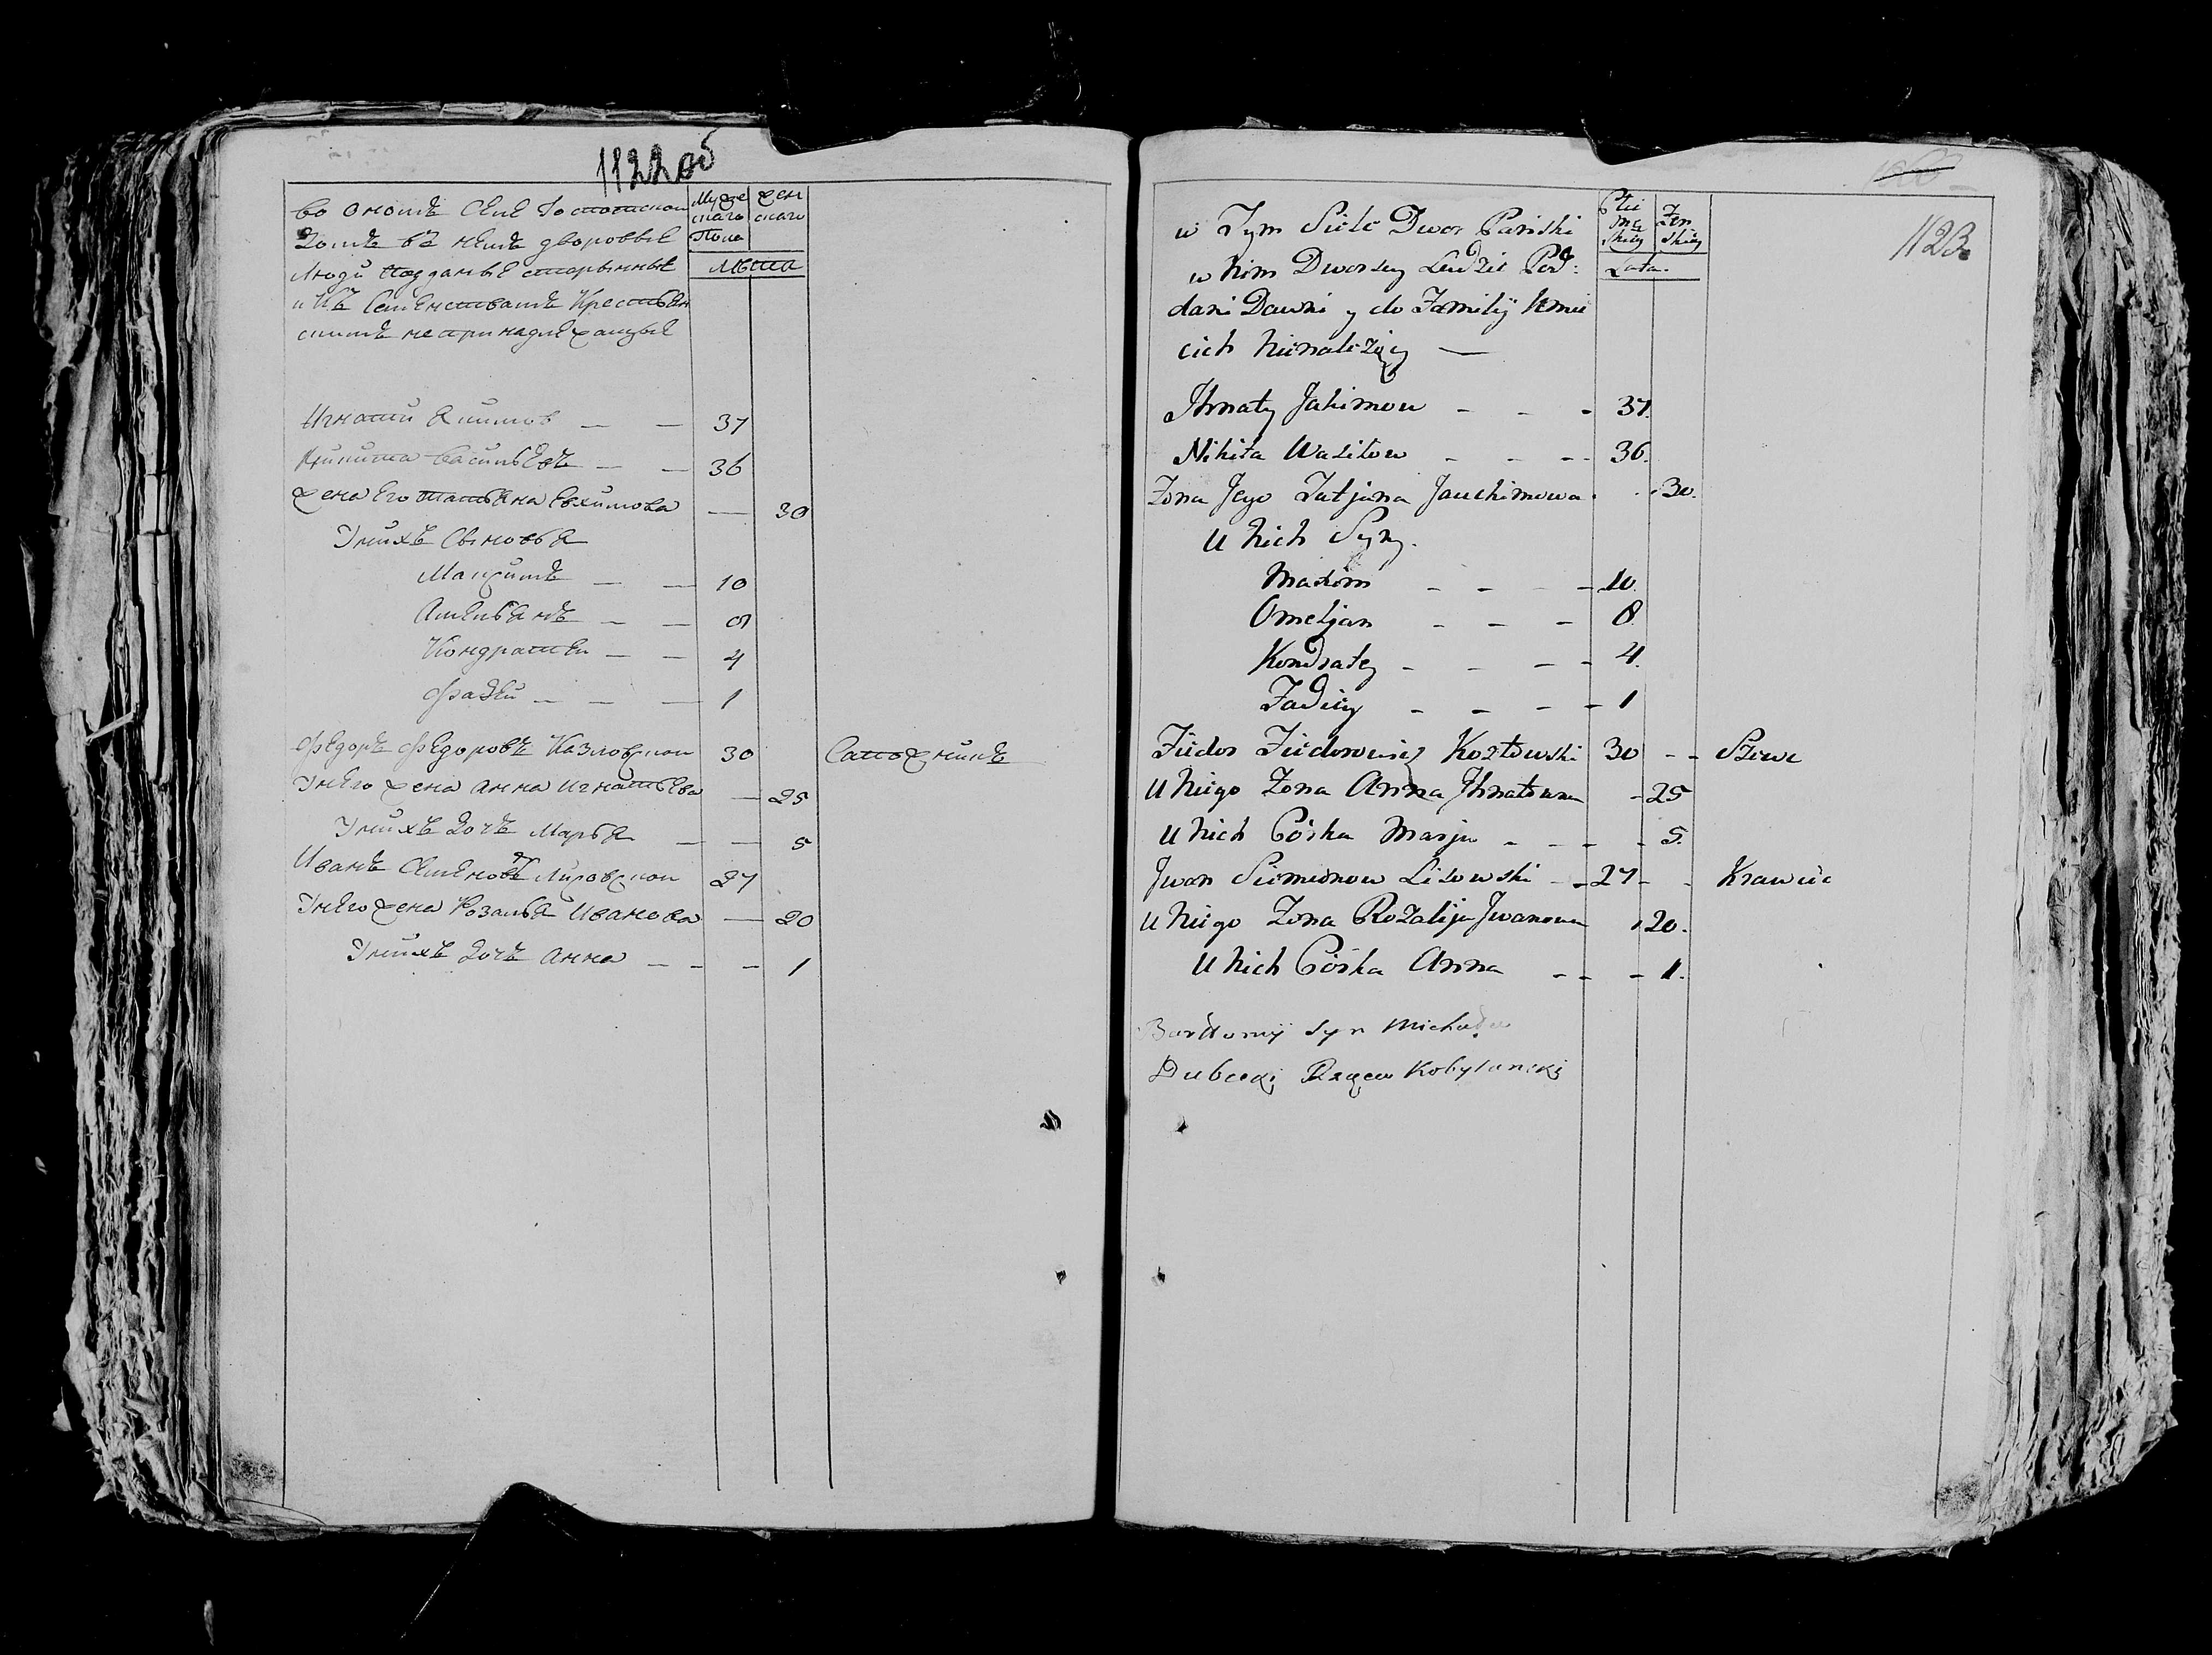 1122 об
во ономъ Селе Господскои
Домъ въ немъ дворовые
Люди подданые старынные
и Къ Семенствамъ Крестьян
скимъ непринадлежащые
Муже
скаго
Пола
жен
скаго
Лѣта
Игнати Якимов — — 37
Никита васильевъ — — 36
жена его татьяна евхимова — 30
У нихъ Сыновья
Макзимъ — — 10
Амельянъ — — 8
Кондратеи — — 4
Фадеи — — — 1
Федоръ Федоровъ Казловскои 30 Сапожникъ
У него жена анна игнатьева — 25
У нихъ дочь Марья — — 5
Иванъ Семеновъ Лисовскои 27
У него жена Розалья Иванова — 20
У нихъ дочъ Анна — — — 1
1123
w Tym Siele Dwor Panski
w Nim Dworscy Ludzie Pod:
dani Dawni y do Familÿ Kmie
cich Nienależący —
Płci
Mę
skiey
Zen
skiey
Lata.
Ihnaty Jakimow - - - 37.
Nikita Wasilow - - - - 36.
Zona Jego Tatjana Jauchimowa . . . 30.
U Nich Syny.
Maxim - - - - 10.
Omeljan - - - 8.
Kondratey - - - - 4.
Fadiey - - - - 1
Fiedor Fiedorowicz Kozłowski 30 - - Szewc
U Niego Zona Anna Ihnatowna - 25
U Nich Córka Marja - - - - 5.
Jwan Siemionow Lisowski - - 27 - - Krawiec
U Niego Zona Rozalija Jwanowna 20.
U Nich Córka Anna - - - 1.
Bartłomiÿ syn Michała
Dubecki Rządca Kobylanski